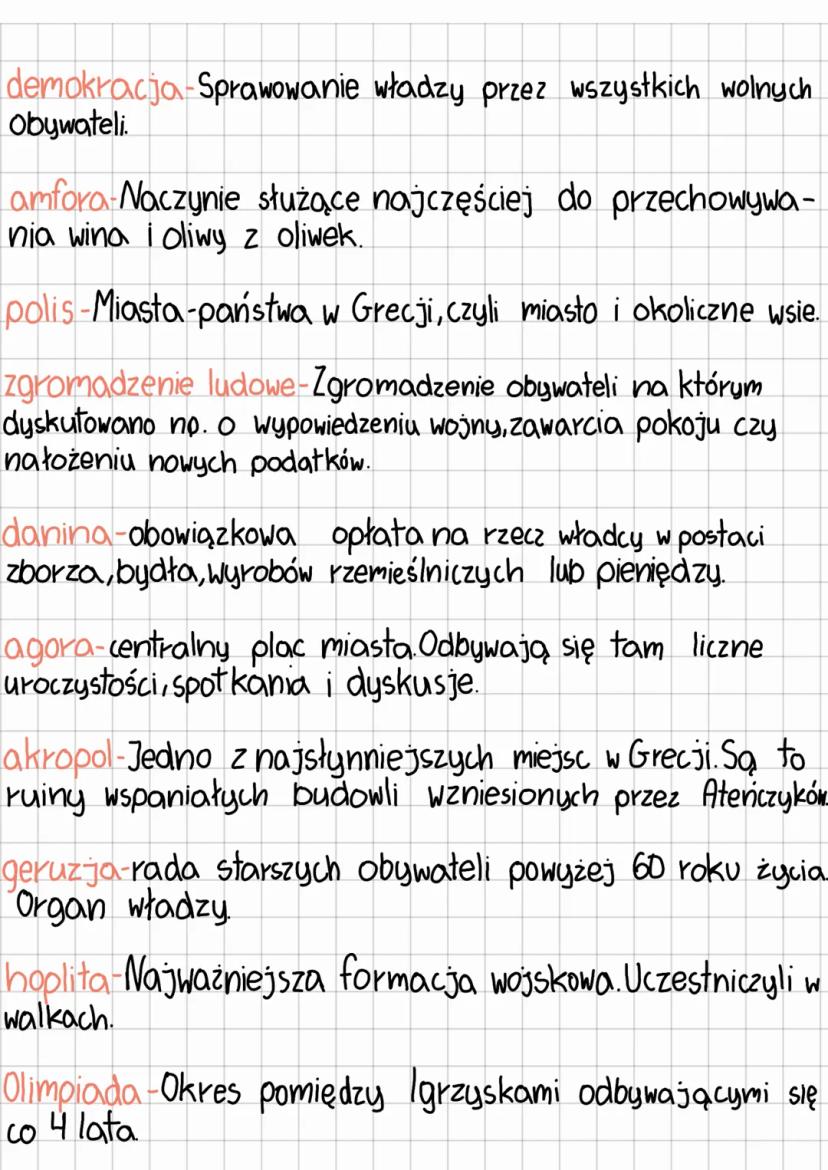 demokracja-Sprawowanie władzy przez wszystkich wolnych
obywateli.
amfora-Naczynie służące najczęściej do przechowywa-
nia wina i oliwy z oliwek.
polis-Miasta-państwa w Grecji, czyli miasto i okoliczne wsie.
zgromadzenie ludowe-Zgromadzenie obywateli na którym
dyskutowano np. o wypowiedzeniu wojny, zawarcia pokoju czy
nałożeniu nowych podatków.
danina-obowiązkowa opłata na rzecz władcy w postaci
zborza, bydła, wyrobów rzemieślniczych lub pieniędzy.
agora-centralny plac miasta. Odbywają się tam liczne
uroczystości, spotkania i dyskusje.
akropol-Jedno z najsłynniejszych miejsc w Grecji. Są to
ruiny wspaniałych budowli wzniesionych przez Ateńczyków.
geruzja-rada starszych obywateli powyżej 60 roku życia.
Organ władzy.
hoplita-Najważniejsza formacja wojskowa. Uczestniczyli w
walkach.
Olimpiada-Okres pomiędzy Igrzyskami odbywającymi się
co 4 lata.